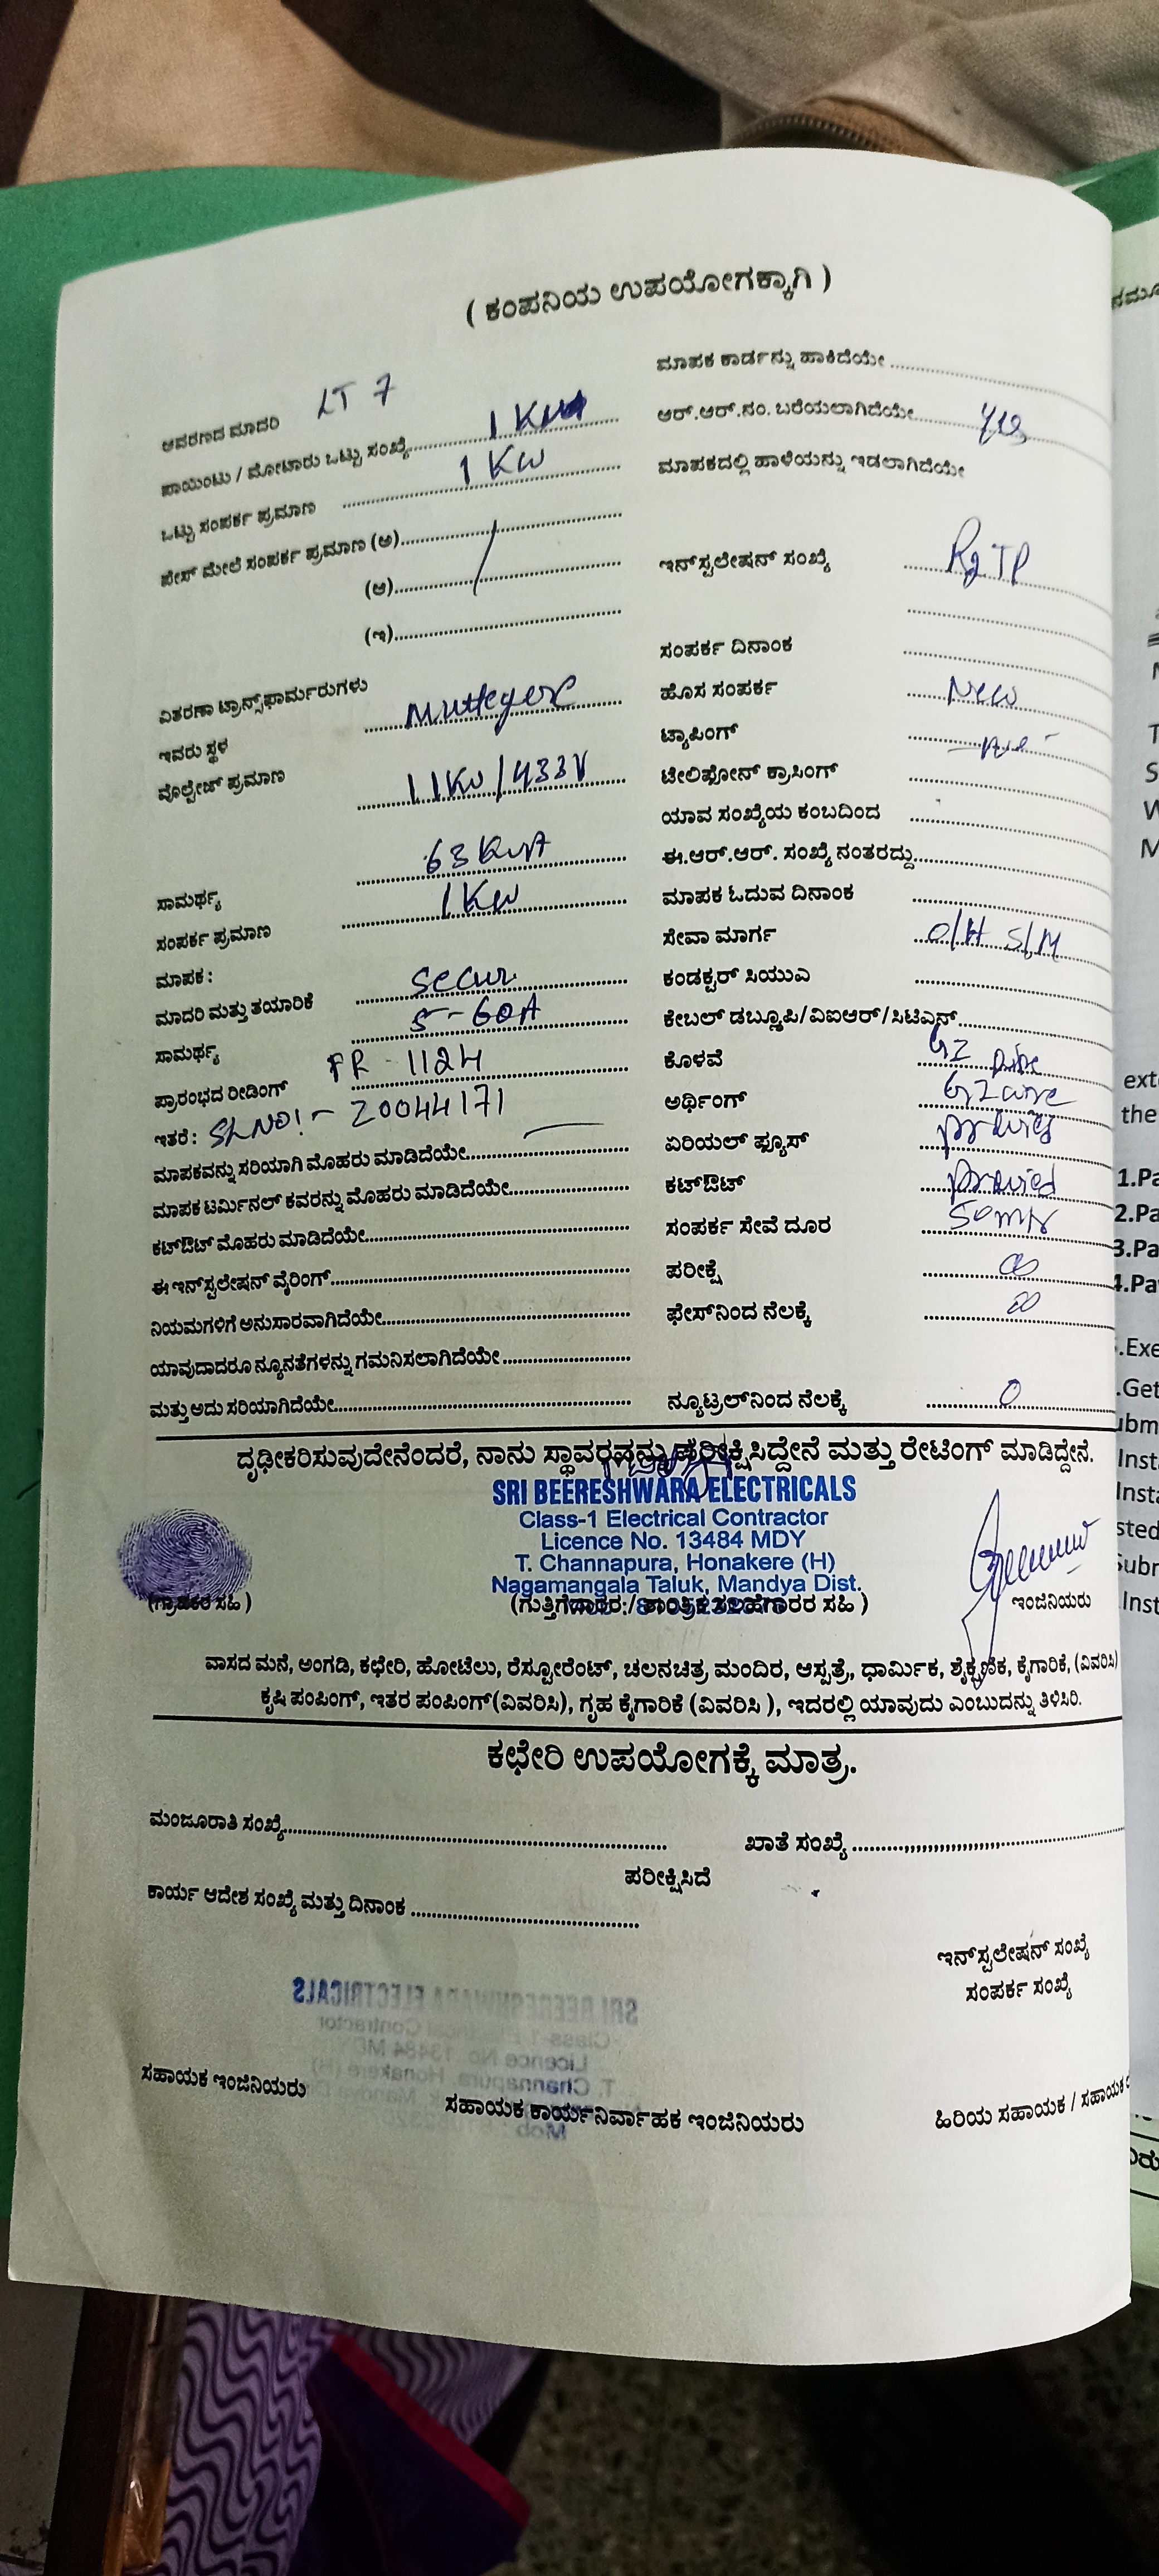 ( ಕಂಪನಿಯ ಉಪಯೋಗಕ್ಕಾಗಿ )
ಆವರಣದ ಮಾದರಿ LT 7
ಪಾಯಿಂಟು / ಮೋಟಾರು ಒಟ್ಟು ಸಂಖ್ಯೆ 1 KW
ಒಟ್ಟು ಸಂಪರ್ಕ ಪ್ರಮಾಣ 1 KW
ಪೇಸ್ ಮೇಲೆ ಸಂಪರ್ಕ ಪ್ರಮಾಣ (ಅ)
(ಆ)
(ಇ)
ವಿತರಣಾ ಟ್ರಾನ್ಸ್‌ಫಾರ್ಮರುಗಳು
ಇವರು ಸ್ಥಳ Muttegere
ವೊಲ್ಟೇಜ್ ಪ್ರಮಾಣ 11KV/433V
ಸಾಮರ್ಥ್ಯ 63 KVA
ಸಂಪರ್ಕ ಪ್ರಮಾಣ 1 KW
ಮಾಪಕ :
ಮಾದರಿ ಮತ್ತು ತಯಾರಿಕೆ Secur
ಸಾಮರ್ಥ್ಯ 5-60A
ಪ್ರಾರಂಭದ ರೀಡಿಂಗ್ FR - 1124
ಇತರೆ : SL NO:- 20044171
ಮಾಪಕವನ್ನು ಸರಿಯಾಗಿ ಮೊಹರು ಮಾಡಿದೆಯೇ
ಮಾಪಕ ಟರ್ಮಿನಲ್ ಕವರನ್ನು ಮೊಹರು ಮಾಡಿದೆಯೇ
ಕಟ್‌ಔಟ್ ಮೊಹರು ಮಾಡಿದೆಯೇ
ಈ ಇನ್‌ಸ್ಟಲೇಷನ್ ವೈರಿಂಗ್
ನಿಯಮಗಳಿಗೆ ಅನುಸಾರವಾಗಿದೆಯೇ
ಯಾವುದಾದರೂ ನ್ಯೂನತೆಗಳನ್ನು ಗಮನಿಸಲಾಗಿದೆಯೇ
ಮತ್ತು ಅದು ಸರಿಯಾಗಿದೆಯೇ
ಮಾಪಕ ಕಾರ್ಡನ್ನು ಹಾಕಿದೆಯೇ
ಆರ್.ಆರ್.ನಂ. ಬರೆಯಲಾಗಿದೆಯೇ Yes
ಮಾಪಕದಲ್ಲಿ ಹಾಳೆಯನ್ನು ಇಡಲಾಗಿದೆಯೇ
ಇನ್‌ಸ್ಟಲೇಷನ್ ಸಂಖ್ಯೆ
ಸಂಪರ್ಕ ದಿನಾಂಕ
ಹೊಸ ಸಂಪರ್ಕ New
ಟ್ಯಾಪಿಂಗ್
ಟೇಲಿಫೋನ್ ಕ್ರಾಸಿಂಗ್
ಯಾವ ಸಂಖ್ಯೆಯ ಕಂಬದಿಂದ
ಈ.ಆರ್.ಆರ್. ಸಂಖ್ಯೆ ನಂತರದ್ದು
ಮಾಪಕ ಓದುವ ದಿನಾಂಕ
ಸೇವಾ ಮಾರ್ಗ O/H S/M
ಕಂಡಕ್ಟರ್ ಸಿಯುಎ
ಕೇಬಲ್ ಡಬ್ಲ್ಯೂಪಿ/ವಿಐಆರ್/ಸಿಟಿಎಸ್
ಕೊಳವೆ GI pipe
ಅರ್ಥಿಂಗ್ GI wire
ಏರಿಯಲ್ ಫ್ಯೂಸ್
ಕಟ್‌ಔಟ್ provied
ಸಂಪರ್ಕ ಸೇವೆ ದೂರ 50 mtr
ಪರೀಕ್ಷೆ
ಫೇಸ್‌ನಿಂದ ನೆಲಕ್ಕೆ
ನ್ಯೂಟ್ರಲ್‌ನಿಂದ ನೆಲಕ್ಕೆ 0
ದೃಢೀಕರಿಸುವುದೇನೆಂದರೆ, ನಾನು ಸ್ಥಾವರವನ್ನು ಪರೀಕ್ಷಿಸಿದ್ದೇನೆ ಮತ್ತು ರೇಟಿಂಗ್ ಮಾಡಿದ್ದೇನೆ.
SRI BEERESHWARA ELECTRICALS
Class-1 Electrical Contractor
Licence No. 13484 MDY
T. Channapura, Honakere (H)
Nagamangala Taluk, Mandya Dist.
(ಗ್ರಾಹಕರ ಸಹಿ )
(ಗುತ್ತಿಗೆದಾರರ / ತಾಂತ್ರಿಕ ಸಲಹೆಗಾರರ ಸಹಿ )
ಇಂಜಿನಿಯರು
ವಾಸದ ಮನೆ, ಅಂಗಡಿ, ಕಛೇರಿ, ಹೋಟೆಲು, ರೆಸ್ಟೋರೆಂಟ್, ಚಲನಚಿತ್ರ ಮಂದಿರ, ಆಸ್ಪತ್ರೆ, ಧಾರ್ಮಿಕ, ಶೈಕ್ಷಣಿಕ, ಕೈಗಾರಿಕೆ, (ವಿವರಿಸಿ)
ಕೃಷಿ ಪಂಪಿಂಗ್, ಇತರ ಪಂಪಿಂಗ್(ವಿವರಿಸಿ), ಗೃಹ ಕೈಗಾರಿಕೆ (ವಿವರಿಸಿ ), ಇದರಲ್ಲಿ ಯಾವುದು ಎಂಬುದನ್ನು ತಿಳಿಸಿರಿ.
ಕಛೇರಿ ಉಪಯೋಗಕ್ಕೆ ಮಾತ್ರ.
ಮಂಜೂರಾತಿ ಸಂಖ್ಯೆ
ಖಾತೆ ಸಂಖ್ಯೆ
ಪರೀಕ್ಷಿಸಿದೆ
ಕಾರ್ಯ ಆದೇಶ ಸಂಖ್ಯೆ ಮತ್ತು ದಿನಾಂಕ
ಇನ್‌ಸ್ಟಲೇಷನ್ ಸಂಖ್ಯೆ
ಸಂಪರ್ಕ ಸಂಖ್ಯೆ
ಸಹಾಯಕ ಇಂಜಿನಿಯರು
ಸಹಾಯಕ ಕಾರ್ಯನಿರ್ವಾಹಕ ಇಂಜಿನಿಯರು
ಹಿರಿಯ ಸಹಾಯಕ / ಸಹಾಯಕ